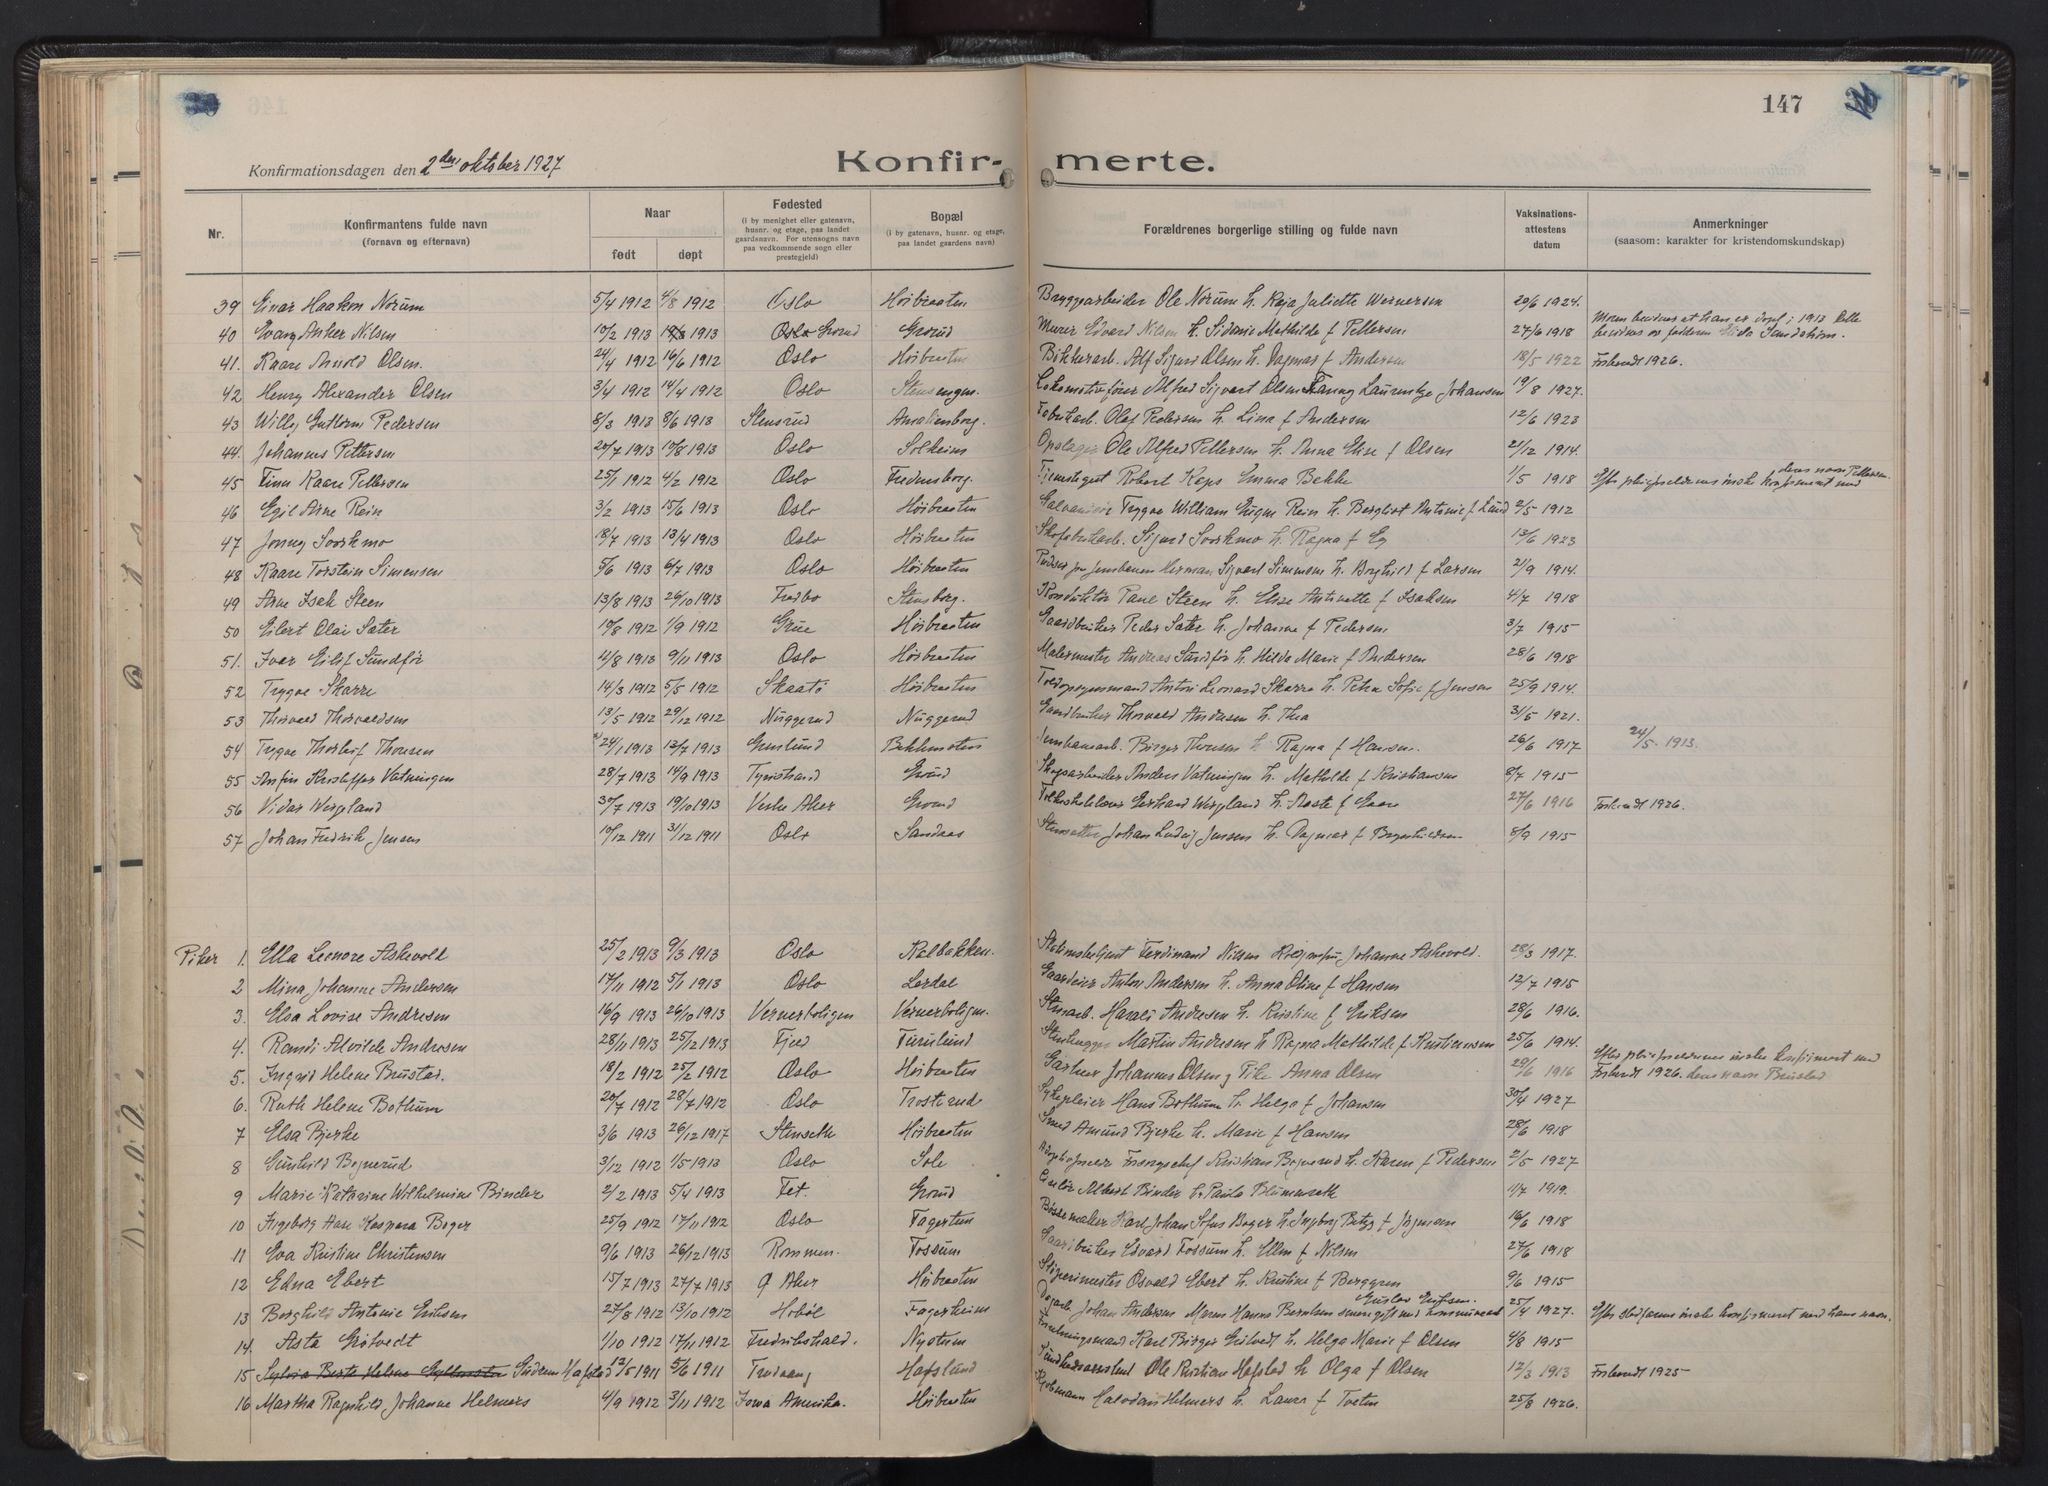 147
Konfirmationsdagen den 2den oktober 1927
Konfir- merte.
Nr.
Konfirmantens fulde navn
(fornavn og efternavn)
Naar
født
døpt
Fødested
(i by menighet eller gatenavn, husnr. og etage, paa landet gaardsnavn. For utensogns navn paa vedkommende sogn eller prestegjeld)
Bopæl
(i by gatenavn, husnr. og etage, paa landet gaardens navn)
Forældrenes borgerlige stilling og fulde navn
Vaksinations-attestens datum
Anmerkninger
(saasom: karakter for kristendomskundskap)
39 Einar Haakon Norum 5/4 1912 4/8 1912 Oslo Høibraaten Bryggearbeider Ole Norum h. Kaja Juliette Wernersen 29/6 1924.
40 Anker Nilsen 10/2 1913 1913 Oslo Grorud Grorud Murer Edvard Nilsen h. Sidanie Mathilde f Pettersen 27/6 1918
41. Kaare Arnold Olsen. 24/4 1912 16/6 1912 Oslo Høibraaten Alf Sigurd Olsen h. Dagmar f Andersen 18/5 1922 Forberedt 1926.
42 Henry Alexander Olsen 3/4 1912 14/4 1912 Oslo Stensengen. Lokomotivfører Alfred Sigvart Olsen Fanny Laurentze Johansen 19/8 1927.
43 Willy Guttorm Pedersen 8/3 1913 8/6 1913 Stensrud Amalienborg. Fabrikarb. Olaf Pedersen h. Lina f Andersen 12/6 1923
44. Johannes Pettersen 20/7 1913 10/8 1913 Oslo Solheim Ole Alfred Pettersen h. Anna Elise f Olsen 21/12 1914.
45 Finn Kaare Pettersen 25/1 1912 4/2 1912 Oslo Fredensborg. Tjenestegut Robert Emma Bekke 1/5 1918 Efter pleieforeldrenes ønske konfirmert med deres navn Pettersen.
46 Egil Arne Rein 3/2 1913 15/6 1913 Oslo Høibraaten Trygve William Eugen Rein h. Bergliot Antonie f Lund 2/5 1912
47 Jonny Soorkmo 18/7 1913 13/4 1913 Oslo Høibraaten Skofabrikarb. Sigurd Soorkmo h. Ragna f Eg 13/6 1923
48 Kaare Torstein Simensen 5/6 1913 6/7 1913 Oslo Høibraaten Pudser paa Jernbanen Herman Sigvart Simensen h. Borghild f Larsen 21/9 1914.
49 Arne Isak Steen 13/8 1913 26/10 1913 Stensborg. Konduktør Paul Steen h. Elise Antonette f Isaksen 4/7 1918
50 Eilert Olai Sater 10/8 1912 1/9 1912 Grue Høibraaten Gaardbruker Peder Sater h. Johanne f Pedersen 3/7 1915
51. Ivar Eilif Sundfør 4/8 1913 9/11 1913 Oslo Høibraaten Malermester Andreas Sundfør h. Hilda Marie f Andersen 28/6 1918
52 Trygve Skarre 14/3 1912 5/5 1912 Skaatø Høibraaten Anton Leonard Skarre h. Petra Sofie f Jensen 25/9 1914.
53 Thorvald Thorvaldsen 13/5 1912 29/12 1912 Nuggerud Nuggerud Gaardbruker Thorvald Andersen h. Thea 31/5 1921.
54 Trygve Thorleif Thoresen 24/1 1913 13/7 1913 Grorud Jernbanearb. Birger Thoresen h Ragna f Hansen. 26/6 1917 24/5 1913.
55 Anfin Kristoffer Vatningen 28/7 1913 14/9 1913 Tyristrand Grorud Skogsarbeider Anders Vatningen h. Mathilde f Kristiansen 8/7 1915
56 Vidar Wergland 30/7 1913 19/10 1913 Vestre Aker Grorud Folkeskolelærer Gerhard Wergland h. Aaste f 27/6 1916 Forberedt 1926.
57 Johan Fredrik Jensen 10/12 1911 31/12 1911 Oslo Sandaas Johan Ludvig Jensen h. Dagmar f 8/9 1915
Piker 1. Ella Leonore Askevold 25/2 1913 9/3 1913 Oslo Kalbakken. Ferdinand Nilsen Johanne Askevold. 28/3 1917.
2 Mina Johanne Andersen 17/11 1912 5/1 1913 Oslo Lerdal Gaardeier Anton Andersen h. Anna Oline f Hansen 12/7 1915
3. Elsa Lovise Andresen 16/9 1913 26/10 1913 Vernerboligen Vernerboligen. Stenarb. Harald Andresen h. Kristine f Eriksen 28/6 1916.
4. Randi Alvilde Andresen 28/11 1913 25/12 1913 Furulund Stenhugger Martin Andresen h Ragna Mathilde f Kristiansen 25/6 1914.
5. Ingrid Helene Brustad. 18/2 1912 25/2 1912 Oslo Høibraaten Gartner Johannes Olsen og Pike Anna Olsen 29/6 1916 Efter pleieforeldrenes ønske konfirmert med
Forberedt 1926. deres navn Brustad
6. Ruth Helene Bothum 20/7 1912 28/7 1912 Oslo Trosterud Sykepleier Hans Bothum h. Helga f Johansen 30/4 1927
7 Elsa Bjerke 3/6 1913 26/12 1917 Stenseth Høibraaten Smed Amund Bjerke h. Marie f Hansen 28/6 1918
8 Gunhild Bognerud 3/12 1912 1/5 1913 Oslo Sole Kristian Bognerud h. Karen f Pedersen 2/5 1927
9 Marie Katarine Wilhelmine Binder 2/2 1913 5/4 1913 Fet. Grorud Albert Binder h. Paula Blumenseth 1/7 1919.
10 Ingeborg Aase Kaspara Boger 25/9 1912 17/11 1912 Oslo Fagertun Bøssemaker Karl Johan Sofus Boger h. Ingborg Betzy f Jørgensen 16/6 1918
11 Eva Kristine Christensen 9/6 1913 26/12 1913 Rommen. Fossum Gaardbruker Edvard Fossum h. Ellen f Nilsen 27/6 1918
12 Edna Ebert 15/7 1913 27/7 1913 Ø Aker Høibraaten Støperimester Osvald Ebert h. Kristine f Berggren 9/6 1915
13 Borghild Antonie Eriksen 27/8 1912 13/10 1912 Hobøl Fagerheim Johan Andersen Maren Hanna Berntsen senere gift med Gustav Eriksen. 25/4 1927. Efter stedfarens ønske konfirmeret med hans navn.
14. Asta Grøtvedt 1/10 1912 17/11 1912 Fredrikshald. Nyotun Forretningsmand Karl Birger Grøtvedt h. Helga Marie f Olsen 4/8 1915
15 Gudrun Hafslod 12/5 1911 5/6 1911 Hafslund Ole Kristian Hafslod h Olga f Olsen 12/3 1913 Forberedt 1925
16 Martha Ragnhild Johanne Helmers 4/9 1912 3/11 1912 Iowa Amerika. Høibraaten Halvdan Helmers h. Laura f Tveten 25/8 1926.